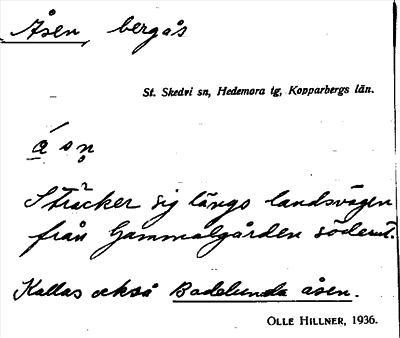 Åsen, bergås
St. Skedvi sn, Hedemora tg, Kopparbergs län.
á s n̥
Sträcker sig längs landsvägen
från Gammalgården söderut.
Kallas också Badelunda åsen.
OLLE HILLNER, 1936.